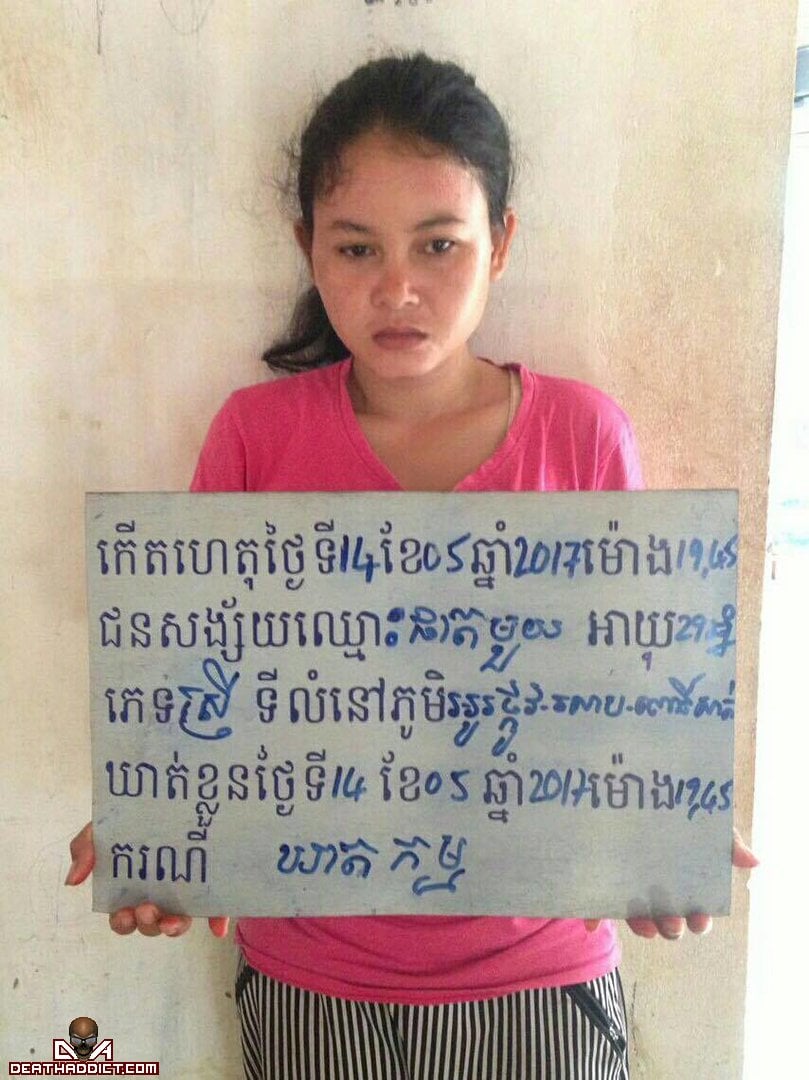 កើតហេតុថ្ងៃទី14ខែ05ឆ្នាំ2017ម៉ោង19,45
ជនសង្ស័យឈ្មោះ មួយ អាយុ29ឆ្នាំ
ភេទស្រី ទីលំនៅភូមិ
ឃាត់ខ្លួនថ្ងៃទី14 ខែ05 ឆ្នាំ2017ម៉ោង19,45
ករណី ឃាតកម្ម
DEATHADDICT.COM